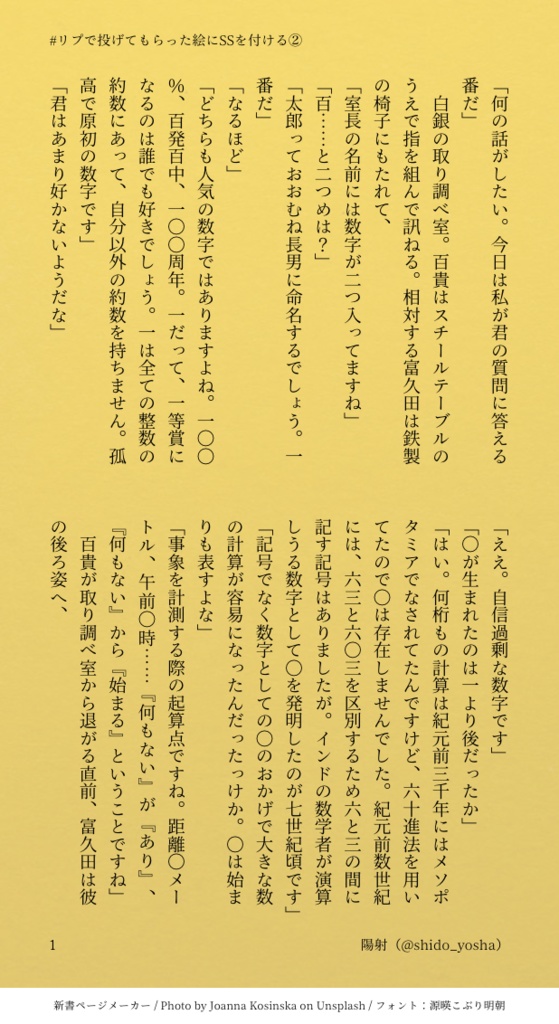 #リプで投げてもらった絵にSSを付ける②
「何の話がしたい。今日は私が君の質問に答える
番だ」
　白銀の取り調べ室。百貴はスチールテーブルの
うえで指を組んで訊ねる。相対する富久田は鉄製
の椅子にもたれて、
「室長の名前には数字が二つ入ってますね」
「百……と二つめは？」
「太郎っておおむね長男に命名するでしょう。一
番だ」
「なるほど」
「どちらも人気の数字ではありますよね。一〇〇
％、百発百中、一〇〇周年。一だって、一等賞に
なるのは誰でも好きでしょう。一は全ての整数の
約数にあって、自分以外の約数を持ちません。孤
高で原初の数字です」
「君はあまり好かないようだな」
「ええ。自信過剰な数字です」
「〇が生まれたのは一より後だったか」
「はい。何桁もの計算は紀元前三千年にはメソポ
タミアでなされてたんですけど、六十進法を用い
てたので〇は存在しませんでした。紀元前数世紀
には、六三と六〇三を区別するため六と三の間に
記す記号はありましたが。インドの数学者が演算
しうる数字として〇を発明したのが七世紀頃です」
「記号でなく数字としての〇のおかげで大きな数
の計算が容易になったんだったっけか。〇は始ま
りも表すよな」
「事象を計測する際の起算点ですね。距離〇メー
トル、午前〇時……『何もない』が『あり』、
『何もない』から『始まる』ということですね」
　百貴が取り調べ室から退がる直前、富久田は彼
の後ろ姿へ、
1
陽射（@shido_yosha）
新書ページメーカー / Photo by Joanna Kosinska on Unsplash / フォント：源暎こぶり明朝